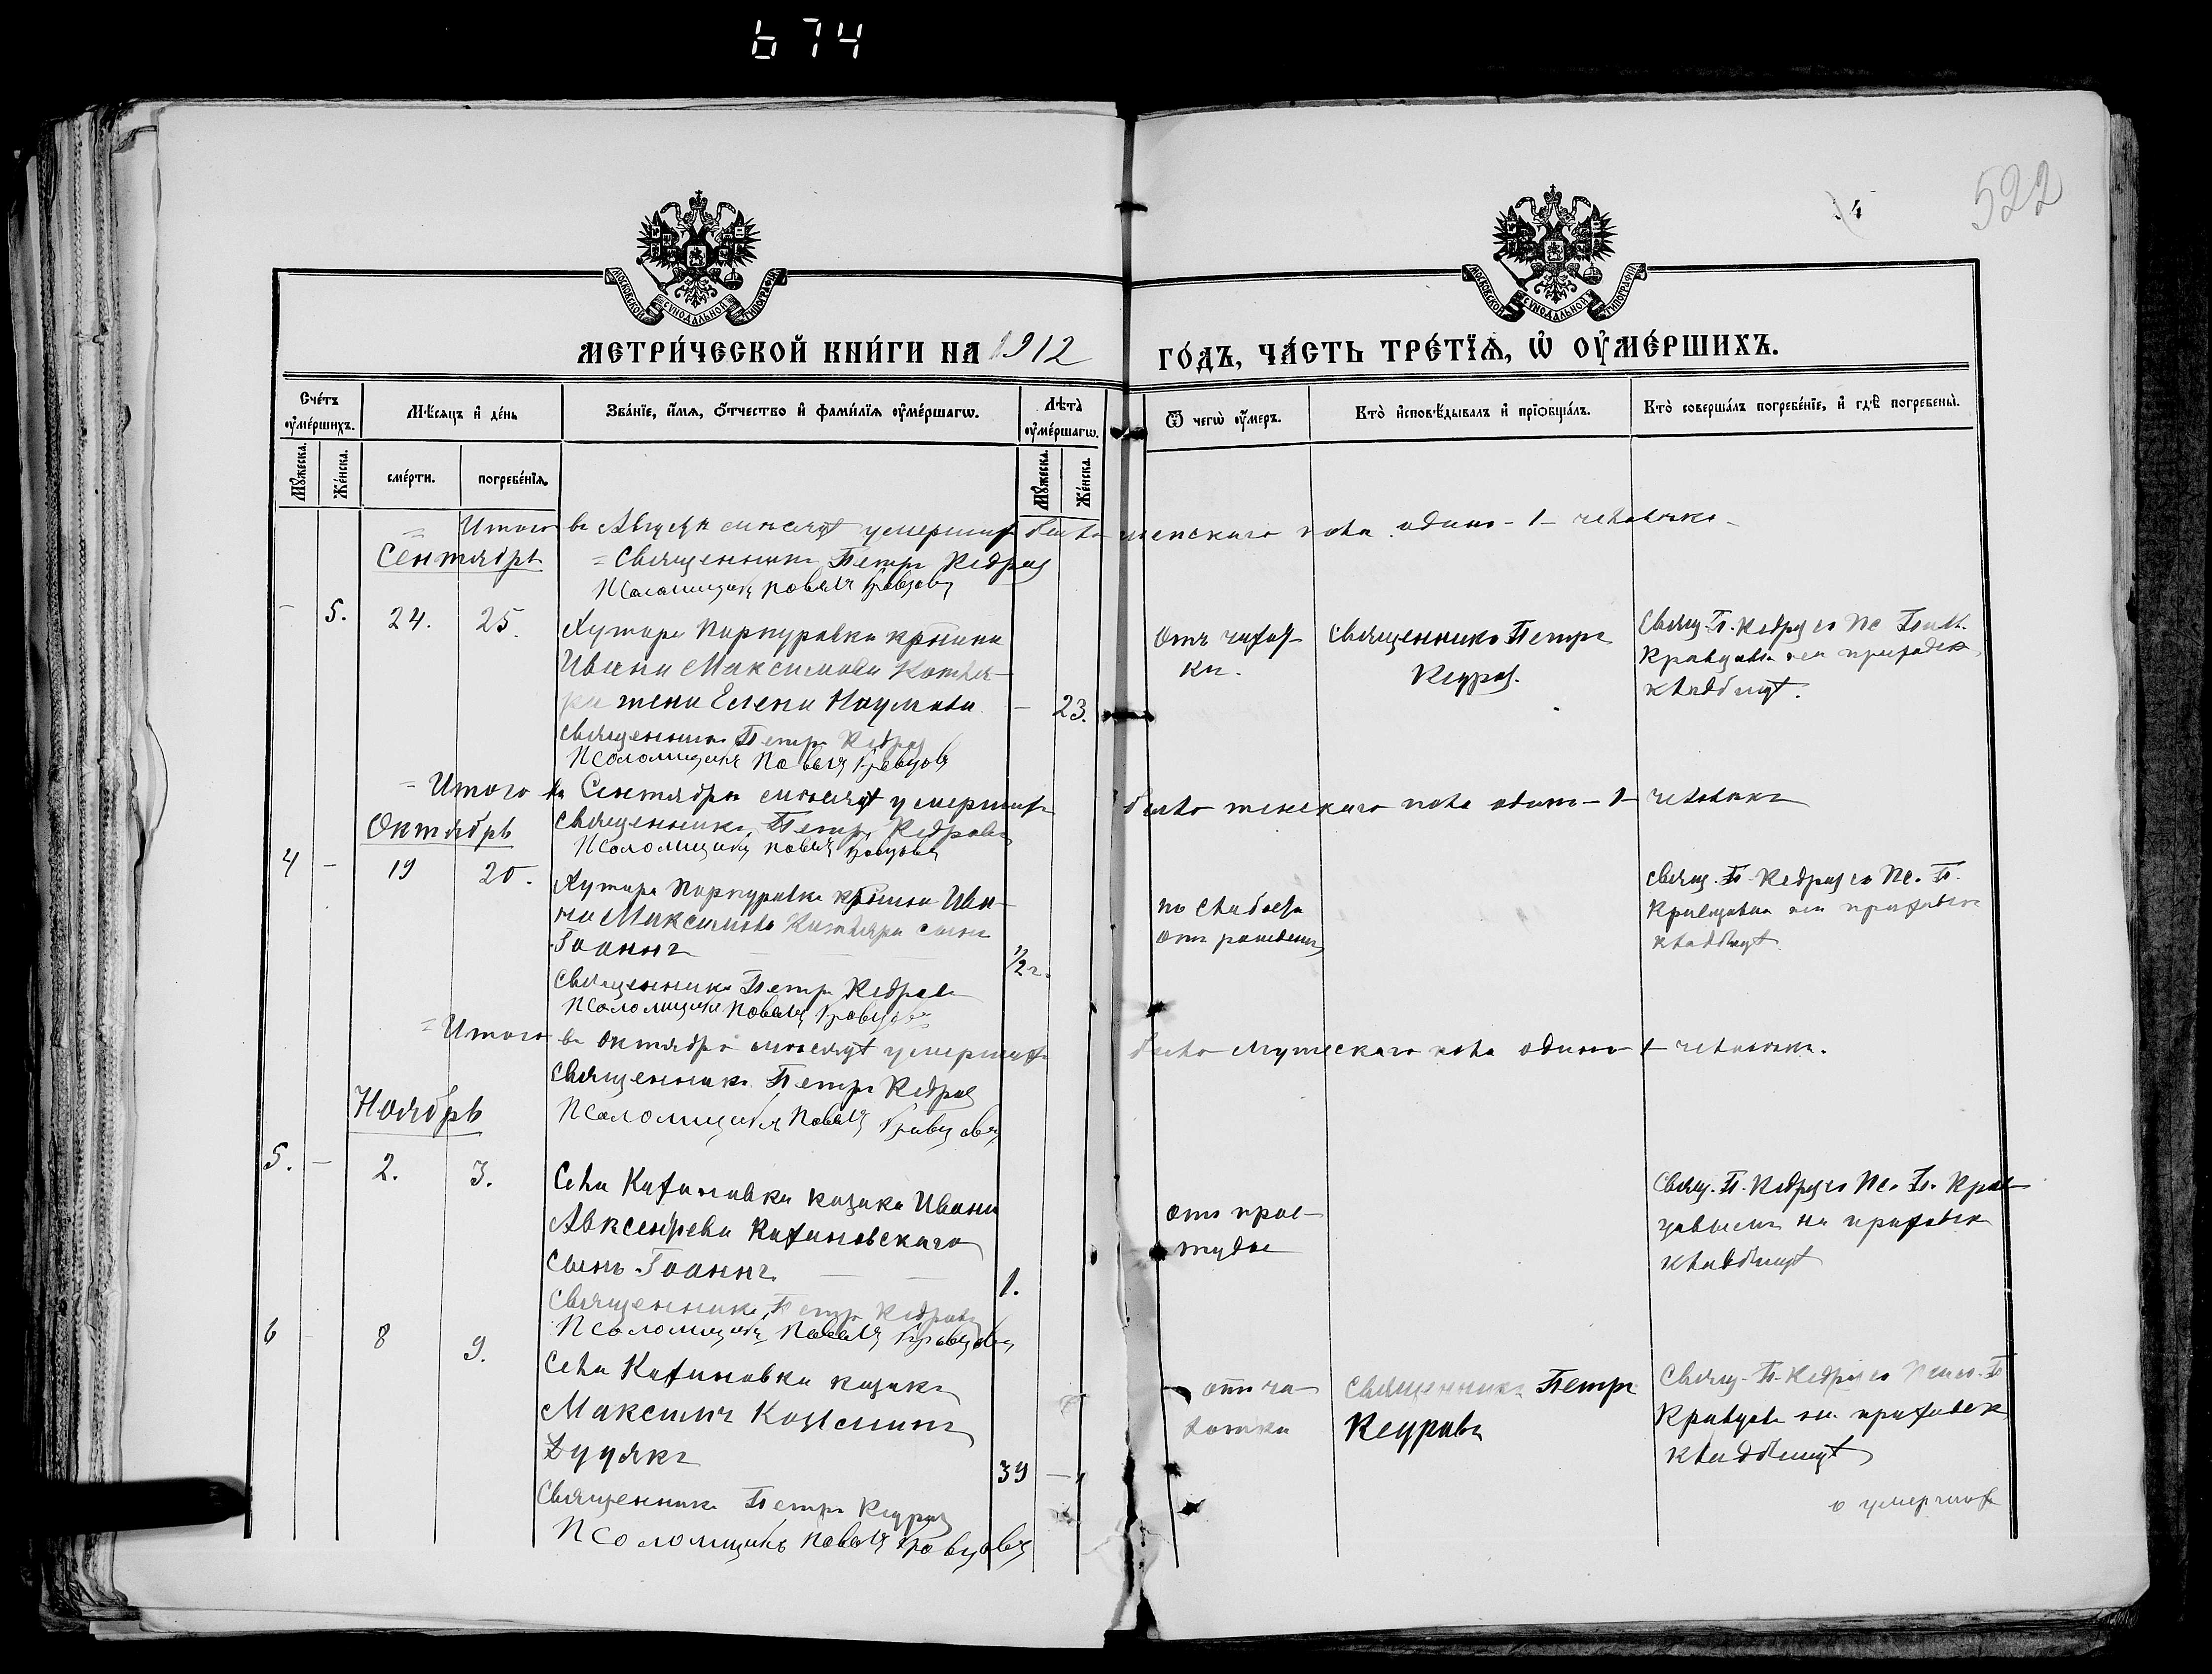 674
522
4
МОСКОВСКОЙ СѴНОДАЛЬНОЙ ТИПОГРАФІИ
МОСКОВСКОЙ СѴНОДАЛЬНОЙ ТИПОГРАФІИ
МЕТРИ́ЧЕСКОЙ КНИ́ГИ НА 1912 ГО́ДЪ, ЧА́СТЬ ТРЕ́ТЇѦ, Ѡ ОУ҆МЕ́РШИХЪ.
Счетъ оумершихъ.
Мѣсяцъ и день
Званїе, имя, отчество и фамилїя оумершагѡ.
Лѣта оумершагѡ.
Ѿ чегѡ оумеръ.
Кто исповѣдывалъ и прїобщалъ.
Кто совершалъ погребенїе, и гдѣ погребены.
Мужеска.
Женска.
смерти.
погребенїя.
Мужеска.
Женска.
Итого въ Августѣ мѣсяцѣ умершихъ было женскаго пола одинъ - 1 - человѣкъ
Сентябрь
Священникъ Петръ Кедровъ
Псаломщикъ Павелъ Кравцовъ
- 5. 24. 25.
Хутора крѣстьянина
Ивана Максимова Котля-
ра жена Елена Наумова - 23.
Отъ чахот-
ки.
Священникъ Петръ
Кедровъ.
Свящ. П. Кедровъ съ Пс. Пав.
Кравцовымъ на приходск.
кладбищѣ.
Священникъ Петръ Кедровъ
Псаломщикъ Павелъ Кравцовъ
Итого въ Сентябрѣ мѣсяцѣ умершихъ было женскаго пола одинъ - 1 - человѣкъ
Октябрь
Священникъ Петръ Кедровъ
Псаломщикъ Павелъ Кравцовъ
4 - 19 20.
Хутора Ива-
на Максимова Котляра сынъ
Іоаннъ 1/2 г.
по слабости
отъ рожденія
Свящ. П. Кедровъ съ Пс. П.
Кравцовымъ на приходск.
кладбищѣ.
Священникъ Петръ Кедровъ
Псаломщикъ Павелъ Кравцовъ
Итого въ Октябрѣ мѣсяцѣ умершихъ было мужескаго пола одинъ 1 человѣкъ.
Священникъ Петръ Кедровъ
Ноябрь
Псаломщикъ Павелъ Кравцовъ
5. - 2. 3.
Села Кахановки козака Ивана
Авксентьева Кахановскаго
сынъ Іоаннъ 1.
отъ прос-
туды
Свящ. П. Кедровъ съ Пс. П. Крав-
цовымъ на приходск.
кладбищѣ
Священникъ Петръ Кедровъ
Псаломщикъ Павелъ Кравцовъ
6 - 8 9.
Села Кахановки козакъ
Максимъ Козьминъ
39 -
отъ ча-
хотки
Священникъ Петръ
Кедровъ
Свящ. П. Кедровъ съ Псал. П.
Кравцов. на приходск.
кладбищѣ
Священникъ Петръ Кедровъ
Псаломщикъ Павелъ Кравцовъ
о умершихъ